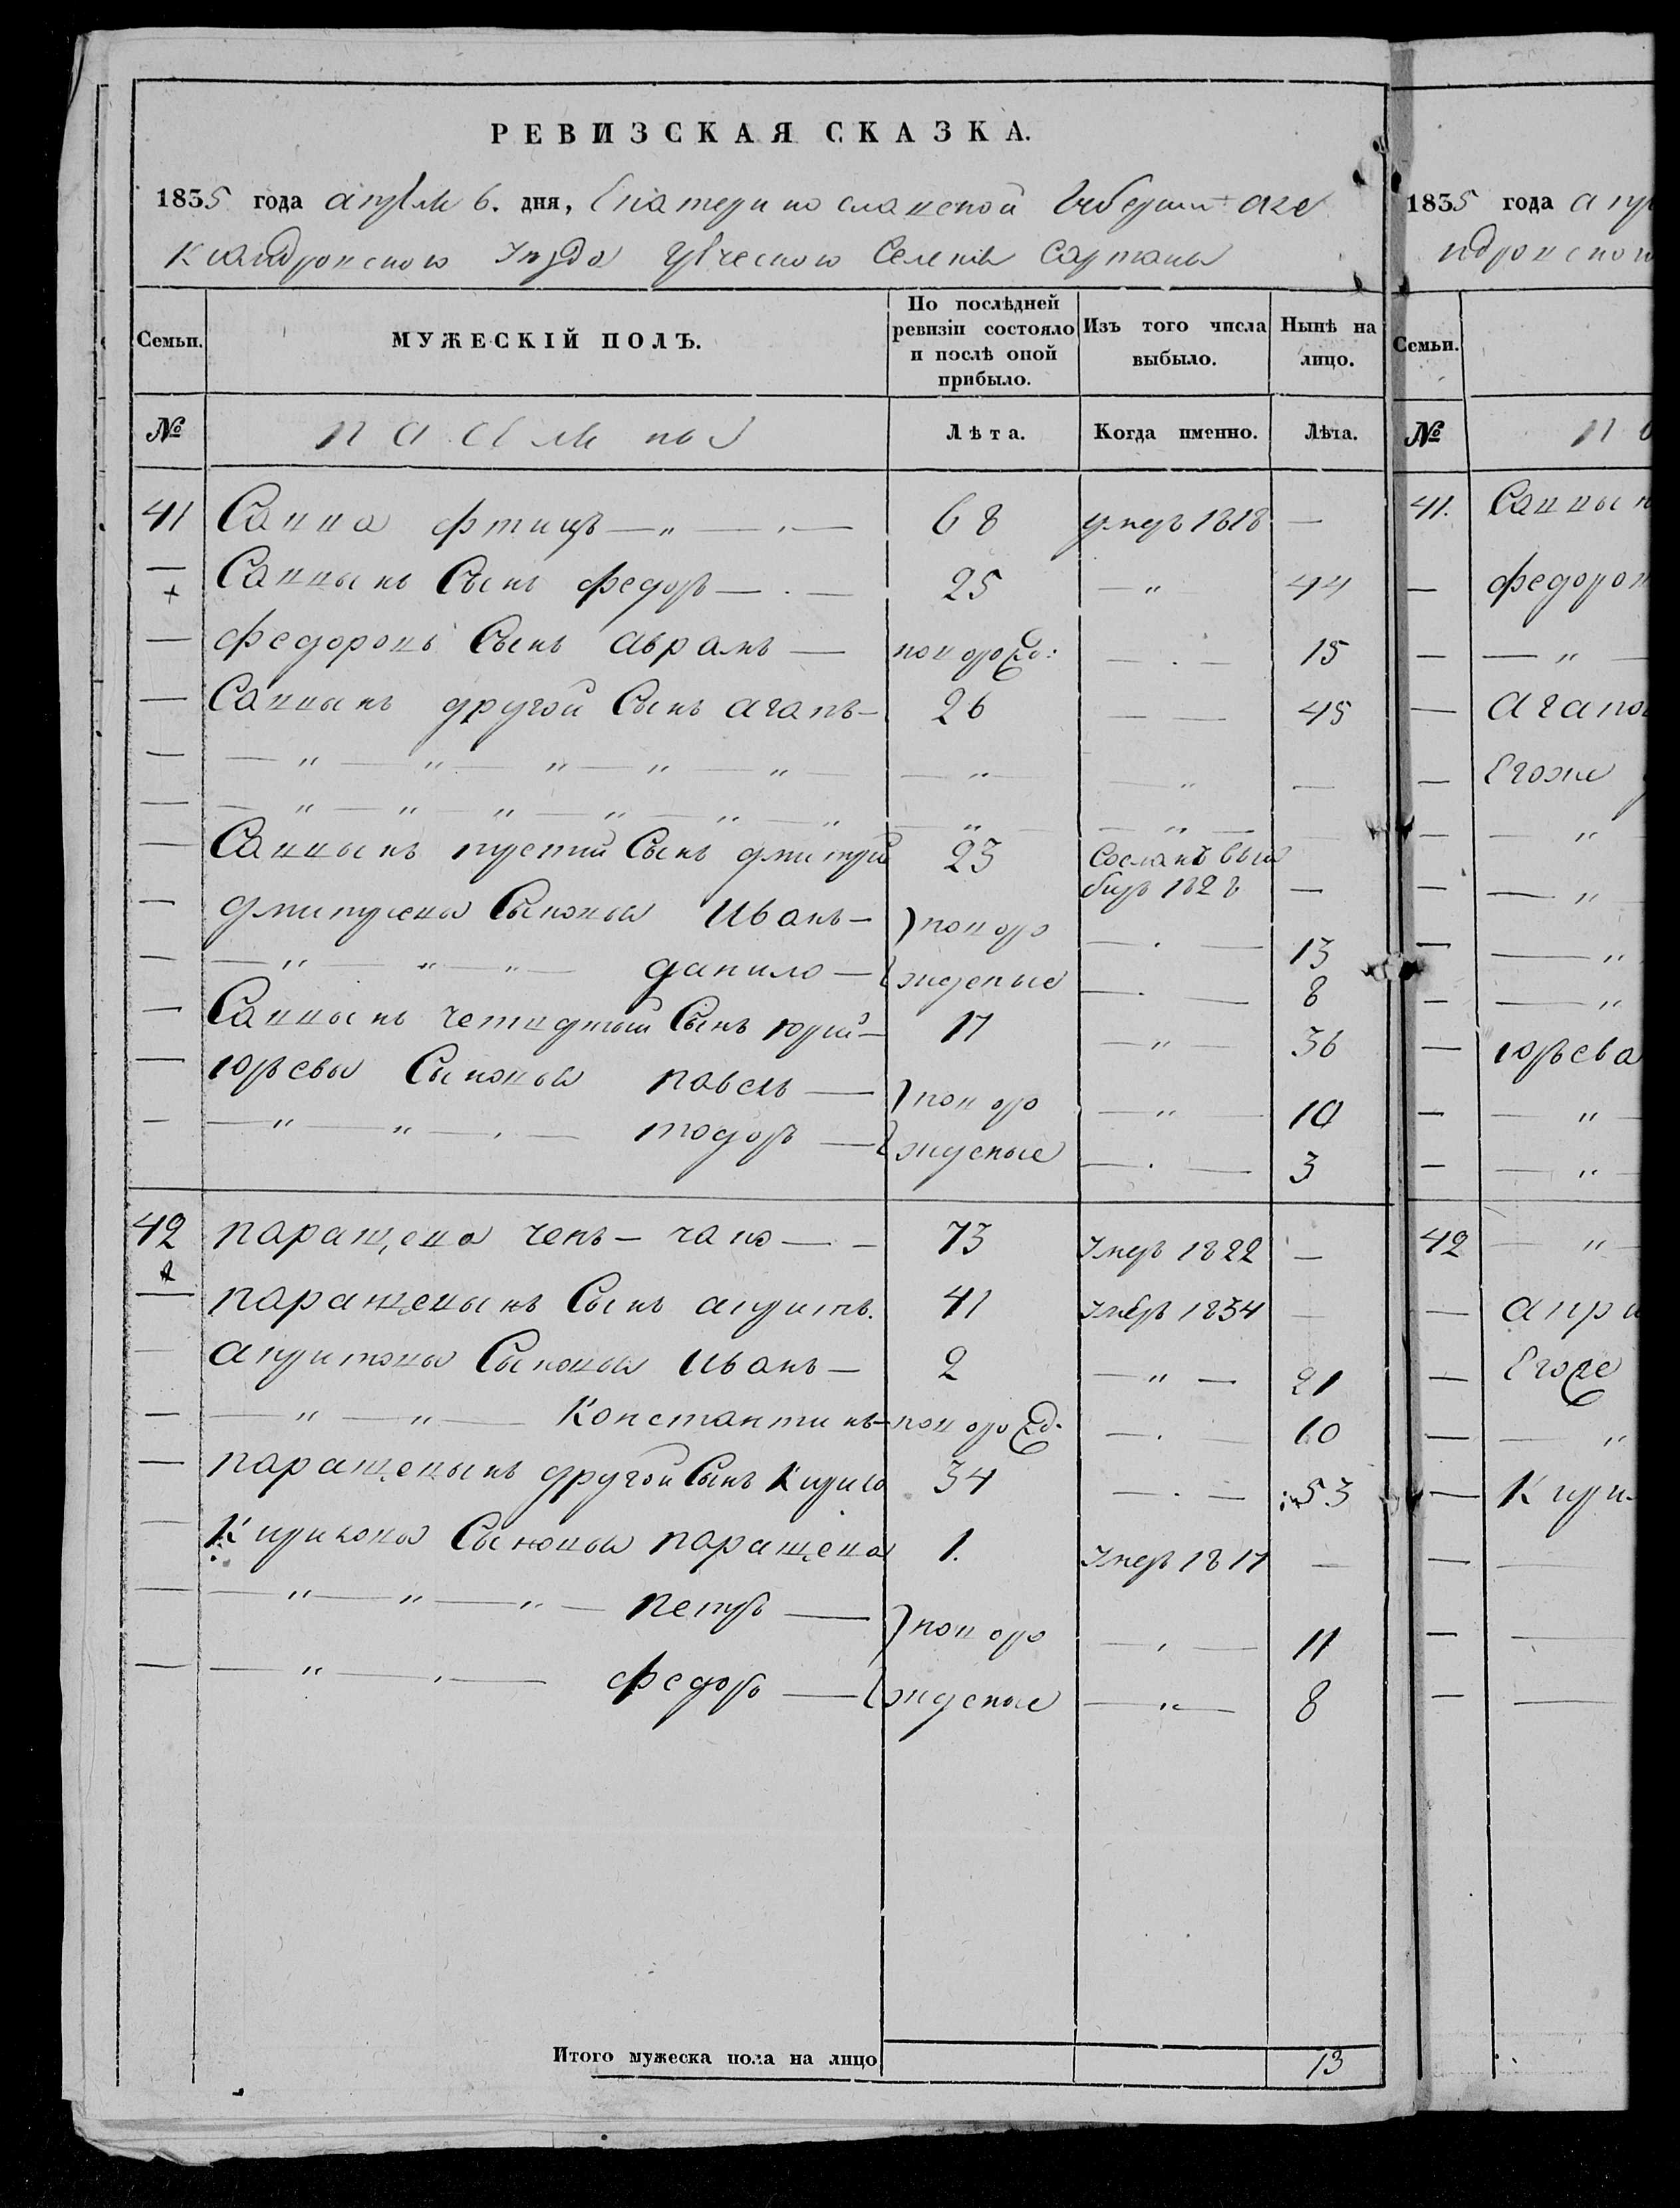 РЕВИЗСКАЯ СКАЗКА.
1835 года апреля 6. дня, Екатеринославской Губернии Але
ксандровского Уезда Греческого Селения Сартаны
Семьи. МУЖЕСКІЙ ПОЛЪ. По послѣдней ревизіи состояло и послѣ оной прибыло. Изъ того числа выбыло. Нынѣ на лицо.
№ поселяне Лѣта. Когда именно. Лѣта.
41 Савва Фтицъ 68 умеръ 1818 —
— Саввынъ Сынъ Федоръ 25 — 44
— Федоровъ Сынъ Аврамъ новорожд: — 15
— Саввынъ другой Сынъ Агапъ 26 — 45
— Саввынъ третий Сынъ Дмитрий 23 Сосланъ въ Си
бирь 1828 —
— Дмитриевы Сыновья Иванъ } новоро — 13
— " " " Данило } жденые — 8
— Саввынъ четвертый Сынъ Юрий 17 — 36
— Юрьевы Сыновья Павелъ } новоро — 10
— " " Тодоръ } жденые — 3
42 Паращева Чепъ-чано 73 Умеръ 1822 —
— Паращевынъ Сынъ Апритъ. 41 Умеръ 1834 —
— Апритовы Сыновья Иванъ 2 — 21
— " " Константинъ новорожд. — 10
— Паращевынъ другой Сынъ Кирило 34 — 53
— Кириловы Сыновья Паращева 1. Умеръ 1817 —
— " " " Петръ } новоро — 11
— " Федоръ } жденые — 8
Итого мужеска пола на лицо 13
1835 года апр
ндровского
Семьи.
№ по
41. Саввын
— Федоров
— "
— Агапов
— Егоже
— "
— "
— "
— "
— Юрьева
— "
— "
42 "
— Апри
— Егоже
— "
— Кири